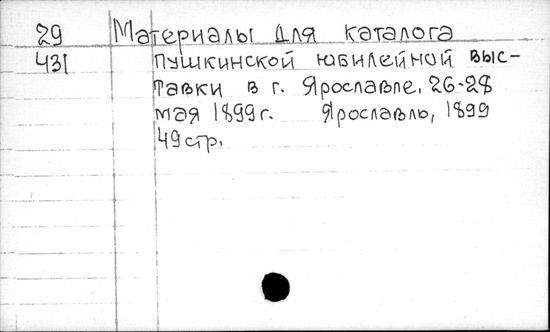 29 Материалы для каталога
431 пушкинской юбилейной выс-
тавки в г. Ярославле, 26-28
мая 1899 г. Ярославль, 1899
49 стр.